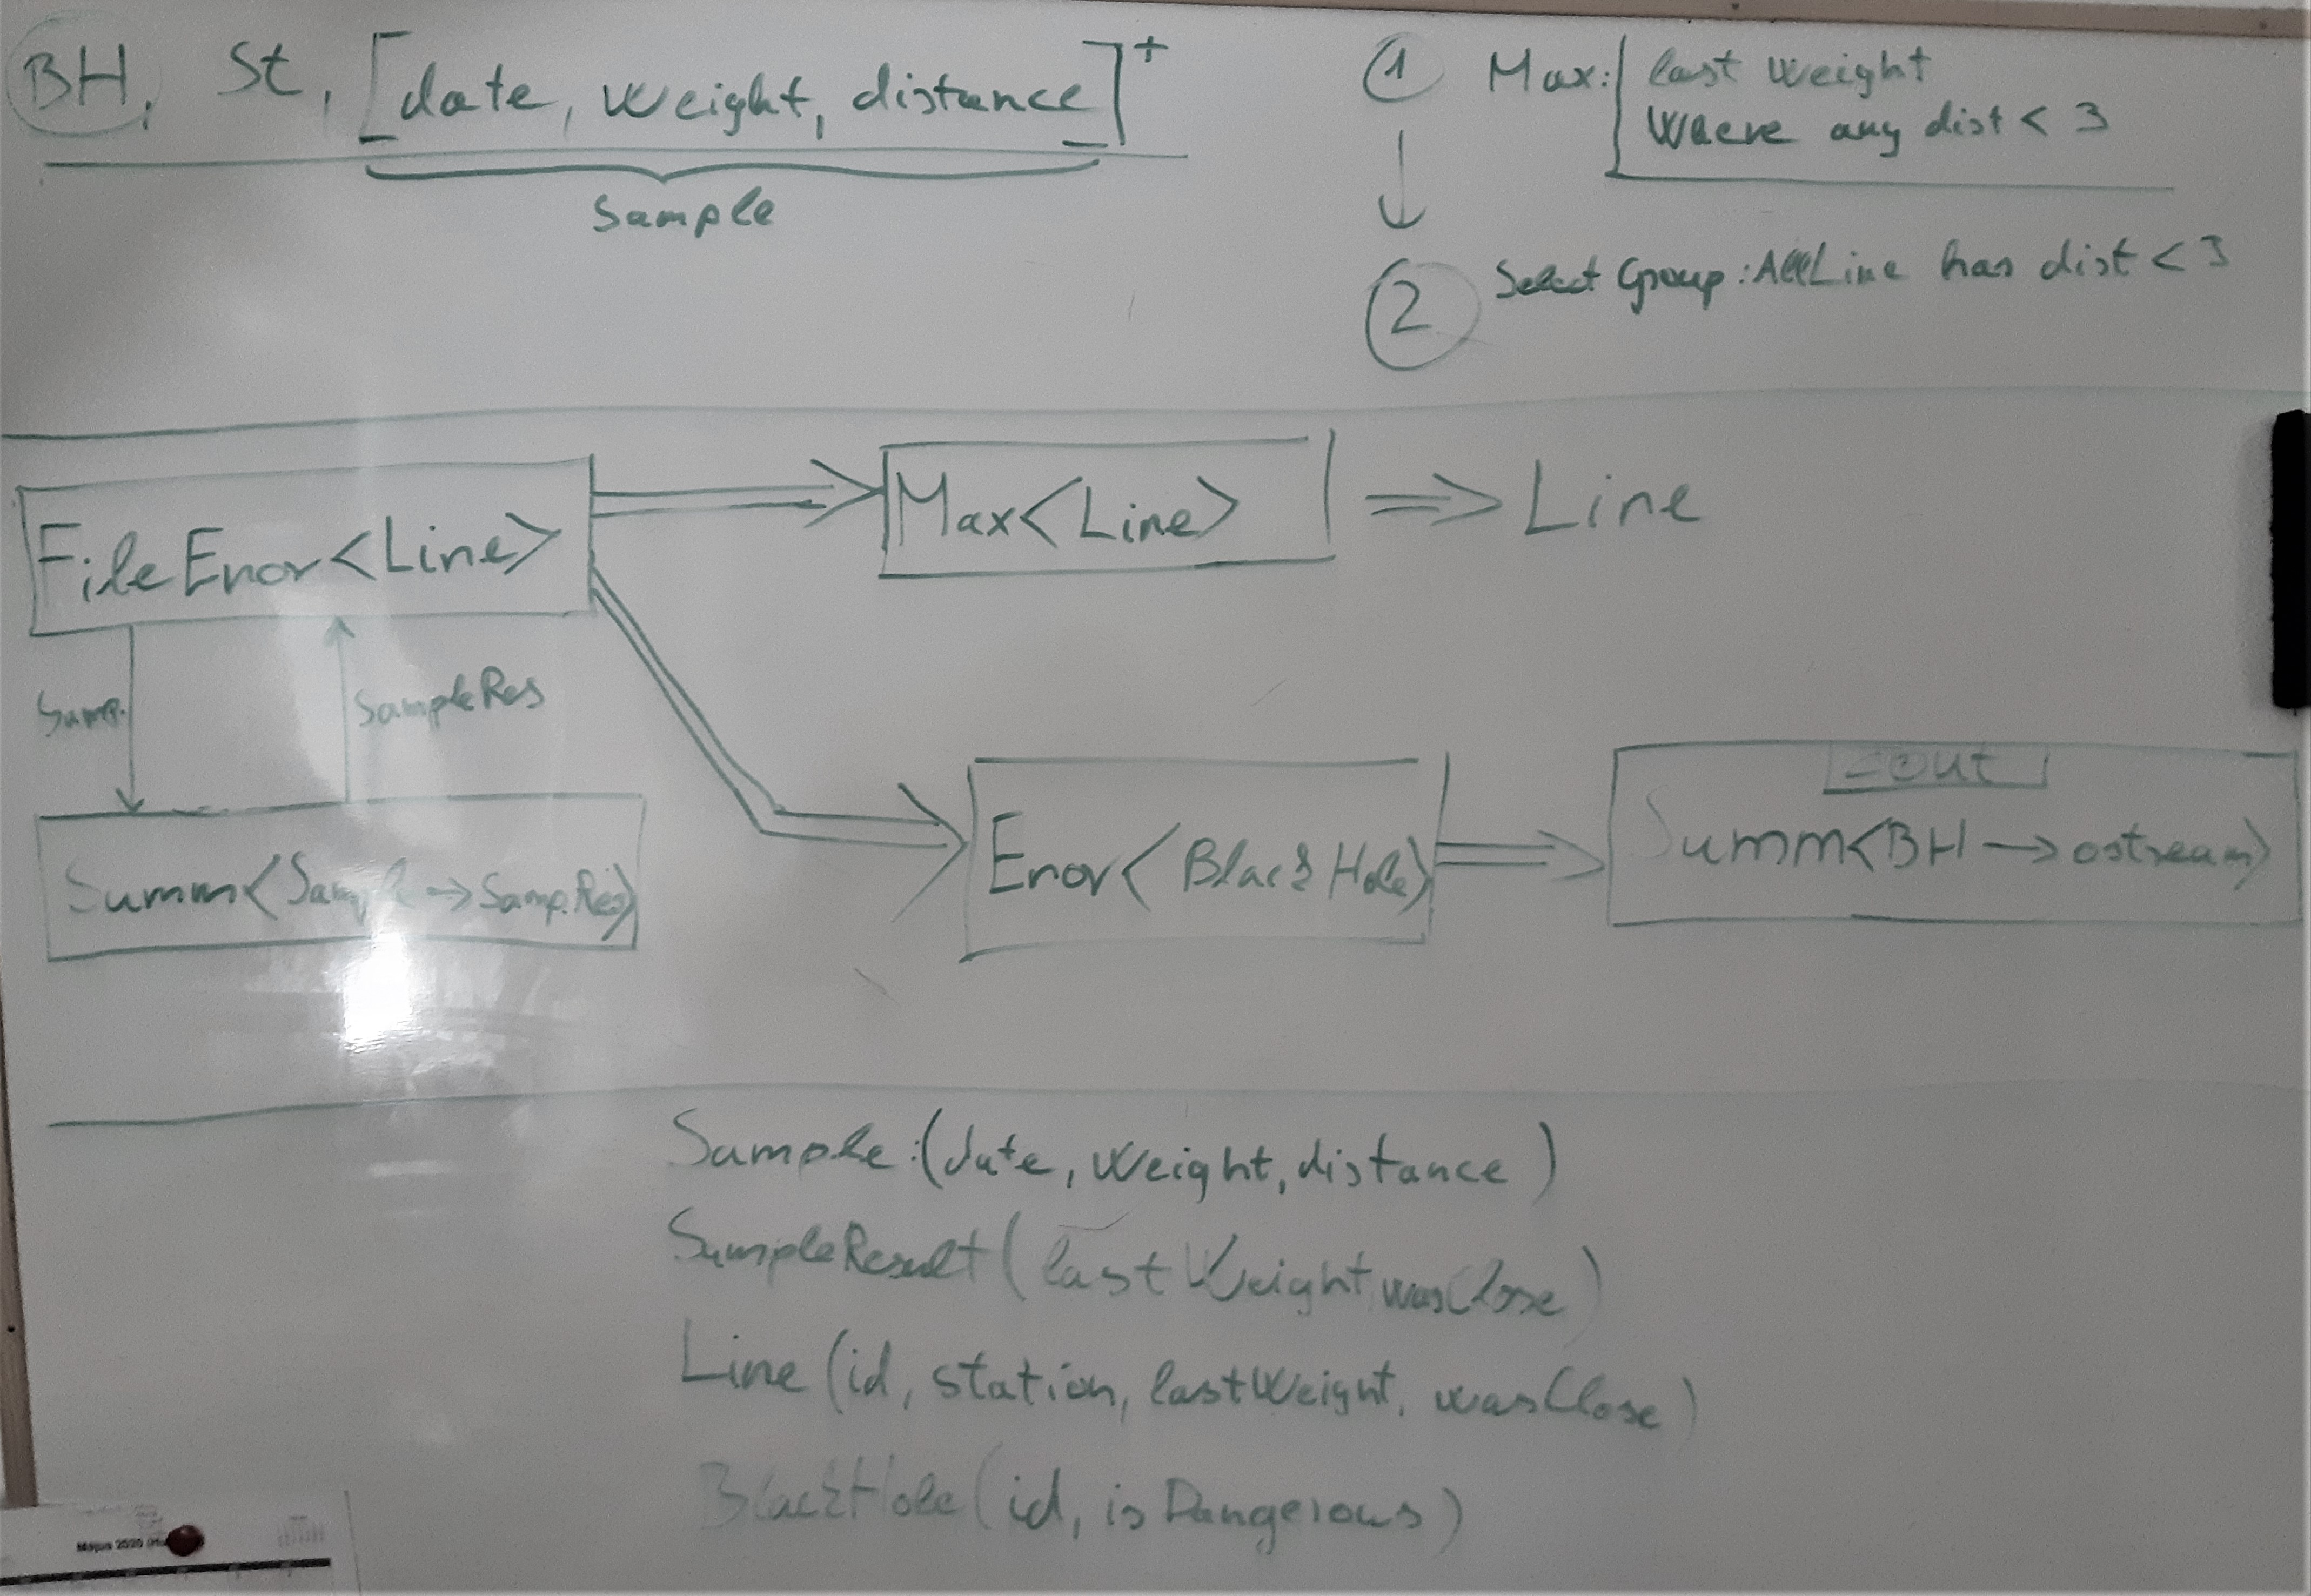 BH, St, [date, weight, distance]+
Sample
① Max: last weight
where any dist < 3
② Select Group: AllLine has dist < 3
FileEnor<Line>
Max<Line> ⇒ Line
Samp.
SampleRes
Summ<Sample→Samp.Res>
Enor<BlackHole>
cout
Summ<BH→ostream>
Sample:(date, weight, distance)
SampleResult(lastWeight, wasClose)
Line(id, station, lastWeight, wasClose)
BlackHole(id, isDangerous)
Május 2020